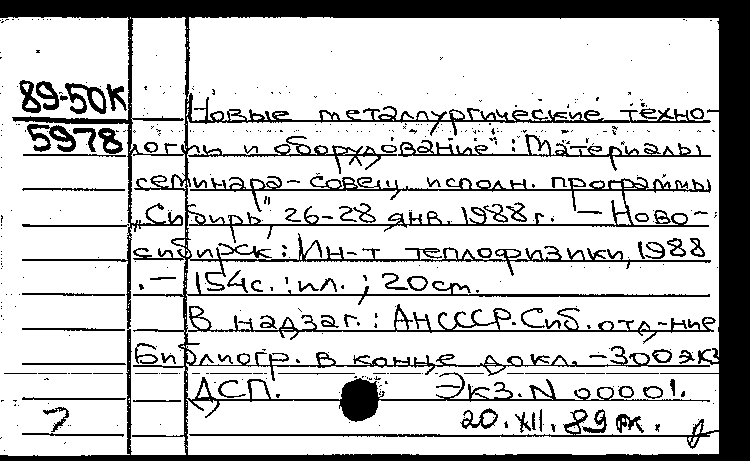 89-50К
5978
Новые металлургические техно-
логии и оборудование : Материалы
семинара-совещ. исполн. программы
„Сибирь“, 26-28 янв. 1988г. — Ново-
сибирск : Ин-т теплофизики, 1988
. — 154с. : ил. ; 20см.
В надзаг.: АНСССР. Сиб. отд-ние
Библиогр. в конце докл. — 300 экз
ДСП. Экз. N 00001.
20. XII. 89